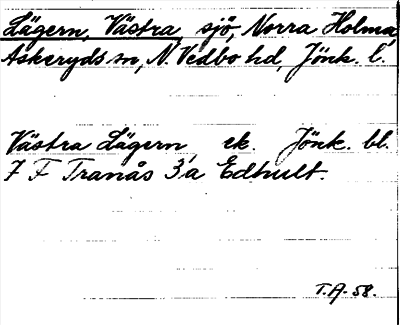 Lägern, Västra, sjö, Norra Holma,
Askeryds sn, N. Vedbo hd, Jönk. l.
Västra Lägern, ek. Jönk. bl.
7 F Tranås 3a Edhult.
T.A. 58.